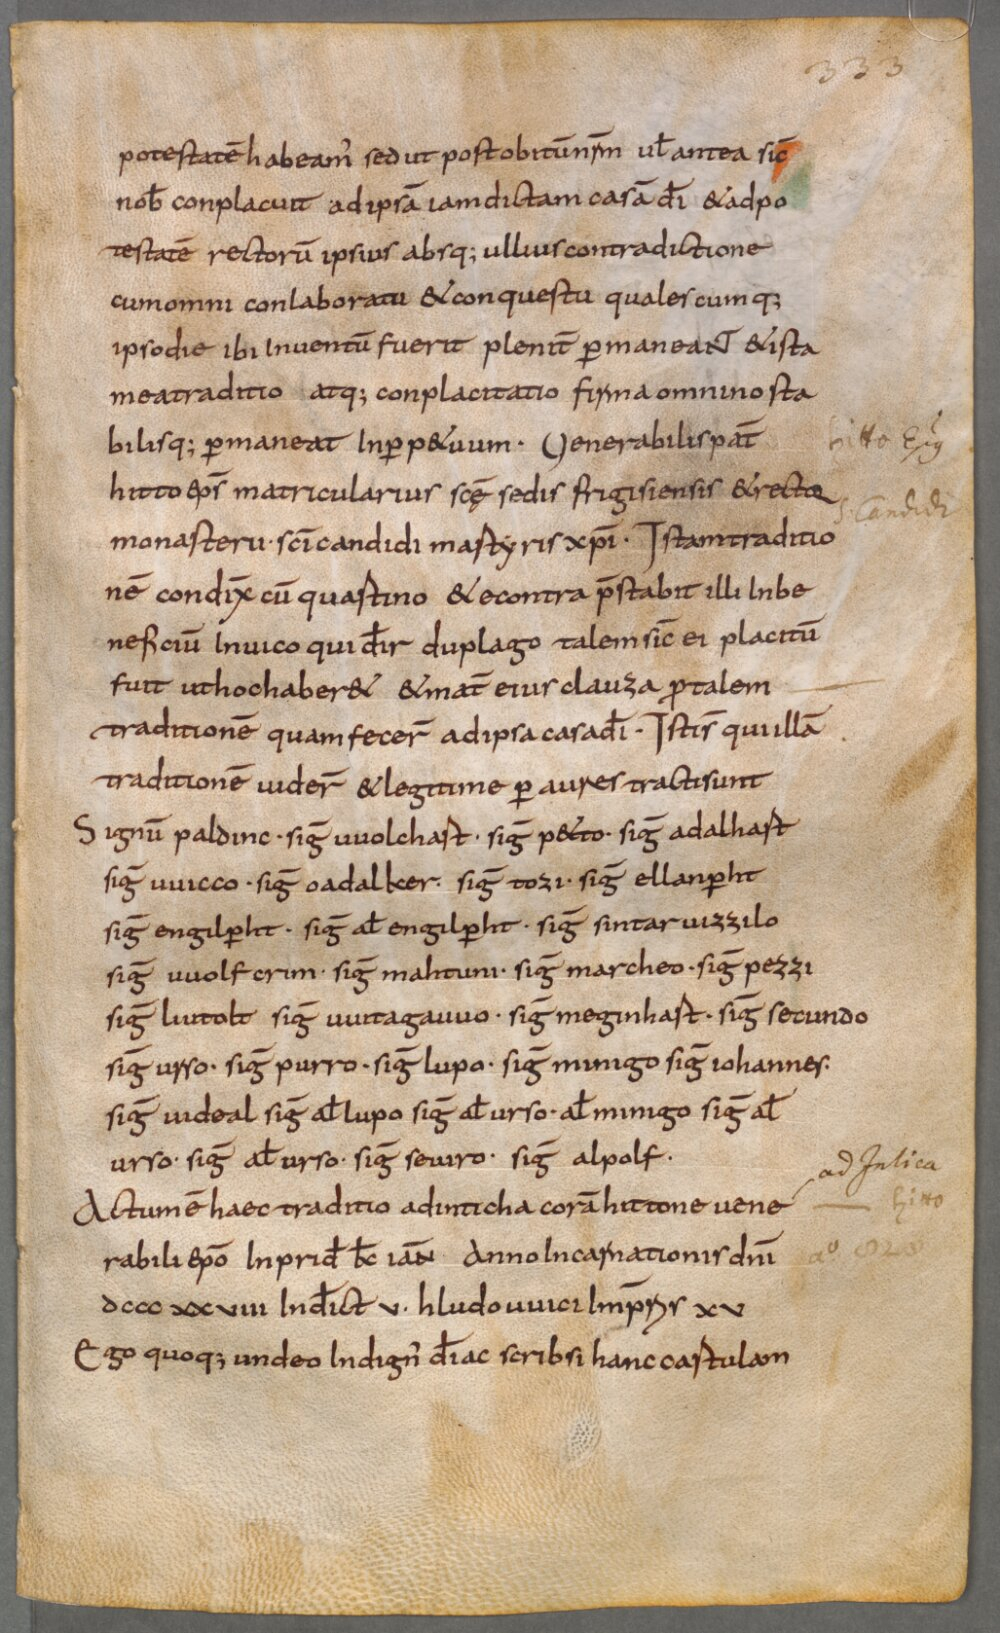 333
potestatē habeam̄ sed ut post obitū nr̄m ul̄ antea sic̄
nob̄ conplacuit ad ipsā iamdictam casā dī &ad po
testatē rectorū ipsius absq; ullius contradictione
cum omni conlaboratu &conquestu qualescumq;
ipso die ibi Inuentū fuerit plenit̄ p̄maneat &ista
mea traditio atq; conplacitatio firma omnino sta
bilisq; p̄maneat Inp̄p&uum · Uenerabilis pat̄
hitto ep̄s matricularius scę̄ sedis frigisiensis &recto
hitto Ep̄s
monasterii · sc̄i candidi martyris xp̄i · Istam traditio
S. Candidi
nē condix̄ cū quartino &econtra p̄stabit illi Inbe
neficiū Inuico qui dr̄ duplago talem sic̄ ei placitū
fuit ut hoc haber& &mat̄ eius clauza p̄ talem
traditionē quam fecer̄ ad ipsa casa dī · Istis̄ qui illā
traditionē uider̄ &legitime p̄ aures tracti sunt
Signū paldinc · siḡ uuolchart · siḡ p&to · siḡ adalhart
siḡ uuicco · siḡ oadalker · siḡ tozi · siḡ ellanp̄ht
siḡ engilp̄ht · siḡ al̄ engilp̄ht · siḡ sintaruizzilo
siḡ uuolfcrim · siḡ mahtuni · siḡ marcheo · siḡ pezzi
siḡ liutolt siḡ uuitagauuo · siḡ meginhart · siḡ secundo
siḡ urso · siḡ purro · siḡ lupo · siḡ minigo siḡ iohannes ·
siḡ uideal siḡ al̄ lupo siḡ al̄ urso · al̄ minigo siḡ al̄
urso · siḡ al̄ urso · siḡ seuiro · siḡ alpolf ·
ad Intica
Actum ē haec traditio ad inticha corā hittone uene
hitto
rabili ep̄o Inprid̄ kl̄ iañ Anno Incarnationis dn̄i
aº 828
dccc xxviii Ind̄ict v · hludouuici Imp̄r̄s xv
Ego quoq; undeo Indign̄ d̄iac scribsi hanc cartulam